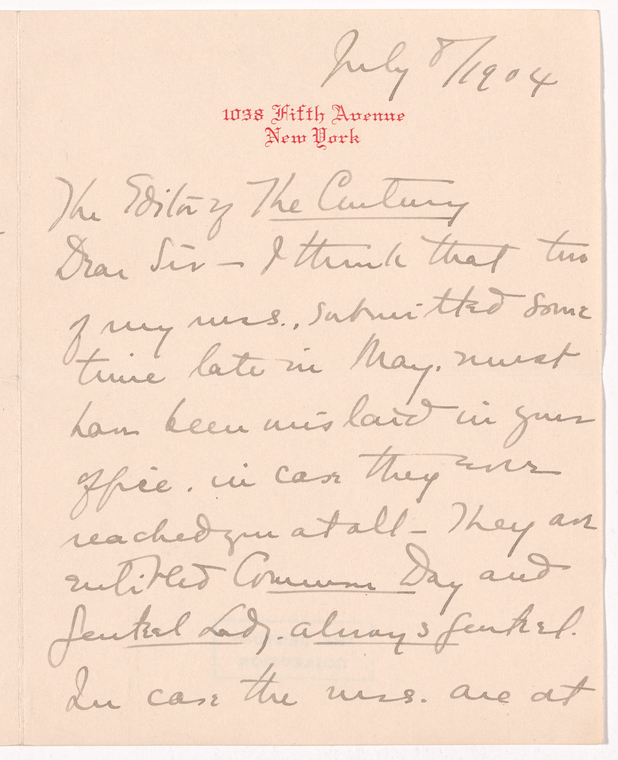 July 8/1904
1038 Fifth Avenue
New York
The Editor of The Century
Dear Sir — I think that two
of my mss., submitted some
time late in May, must
have been mislaid in your
office, in case they ever
reached you at all — They are
entitled Common Day and
Gentle Lady, always Gentle.
In case the mss. are at